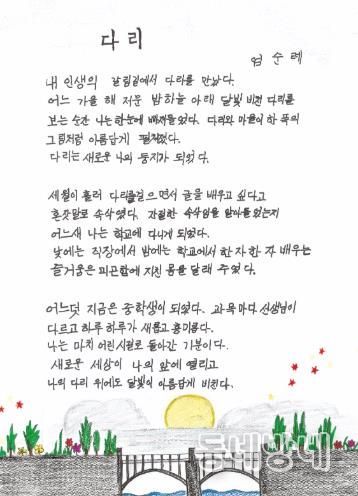 다리
엄순례
내 인생의 갈림길에서 다리를 만났다.
어느 가을 해 저문 밤하늘 아래 달빛 비친 다리를
보는 순간 나는 한눈에 빠져들었다. 다리와 마을이 한 폭의
그림처럼 아름답게 펼쳐졌다.
다리는 새로운 나의 둥지가 되었다.
세월이 흘러 다리를 걸으면서 글을 배우고 싶다고
혼잣말로 속삭였다. 간절한 속삭임을 알아들었는지
어느새 나는 학교에 다니게 되었다.
낮에는 직장에서 밤에는 학교에서 한자 한자 배우는
즐거움은 피곤함에 지친 몸을 달래 주었다.
어느덧 지금은 중학생이 되었다. 과목마다 선생님이
다르고 하루 하루가 새롭고 흥미롭다.
나는 마치 어린시절로 돌아간 기분이다.
새로운 세상이 나의 앞에 열리고
나의 다리 위에도 달빛이 아름답게 비친다.
동네방네